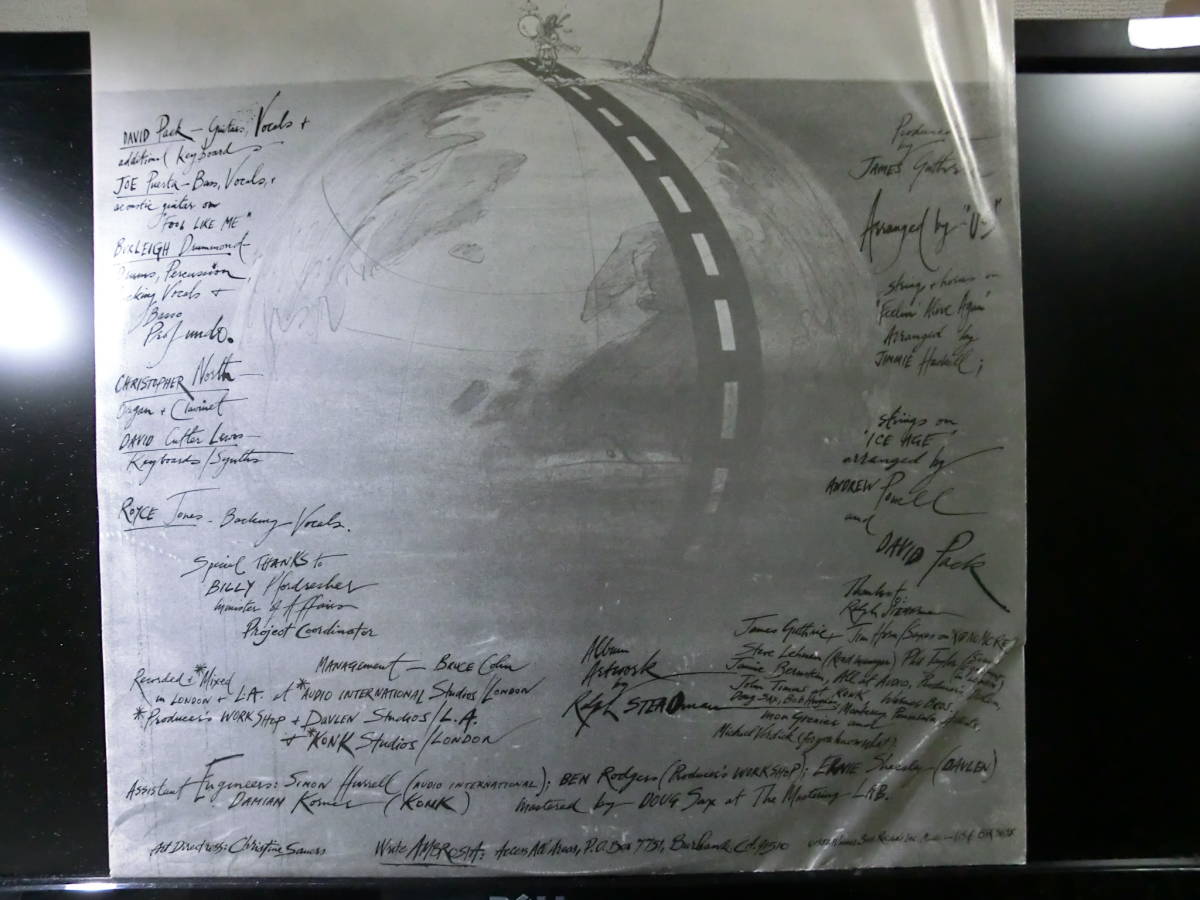 DAVID Pack — Guitars, Vocals +
additional Keyboards
JOE Puerta — Bass, Vocals, +
acoustic guitar on
"FOOL LIKE ME"
BURLEIGH Drummond —
Drums, Percussion,
Backing Vocals +
Basso
Profundo.
CHRISTOPHER North —
Organ + Clarinet
DAVID Cutler Lewis —
Keyboards/Synths
ROYCE Jones — Backing Vocals.
Special THANKS to
BILLY Pfordresher
Minister of Affairs
Project Coordinator
MANAGEMENT — BRUCE Cohn
Recorded + *Mixed
in LONDON + L.A. at *AUDIO INTERNATIONAL Studios/LONDON
*Producer's WORKSHOP + DAVLEN Studios/L.A.
+ *KONK Studios/LONDON
Produced
by
JAMES Guthrie
Arranged by "US"
strings + horns on
"Feelin' Alive Again"
Arranged by
JIMMIE Haskell;
strings on
"ICE AGE"
arranged by
ANDREW Powell
and
DAVID Pack
Album
Artwork
by
Ralph STEADman
Thanks to
Ralph STEADman
James Guthrie + Jim Horn/Saxes on
Steve Lehman (Road manager) Phil Taylor
Jamie Bernstein, All at AUDIO, Producer's, Davlen,
John Timms at KONK WARNER BROS.
Doug Sax,
and
Michael Verdick (for you know what)
Assistent Engineers: SIMON Hurrell (AUDIO INTERNATIONAL); BEN Rodgers (Producer's WORKSHOP); ERNIE Sheesly (DAVLEN)
DAMIAN Korner (KONK) Mastered by — DOUG Sax at The Mastering LAB.
Art Directress: Christine Sauers Write AMBROSIA: Access All Areas, P.O. Box 7751, Burbank, Ca. 91510